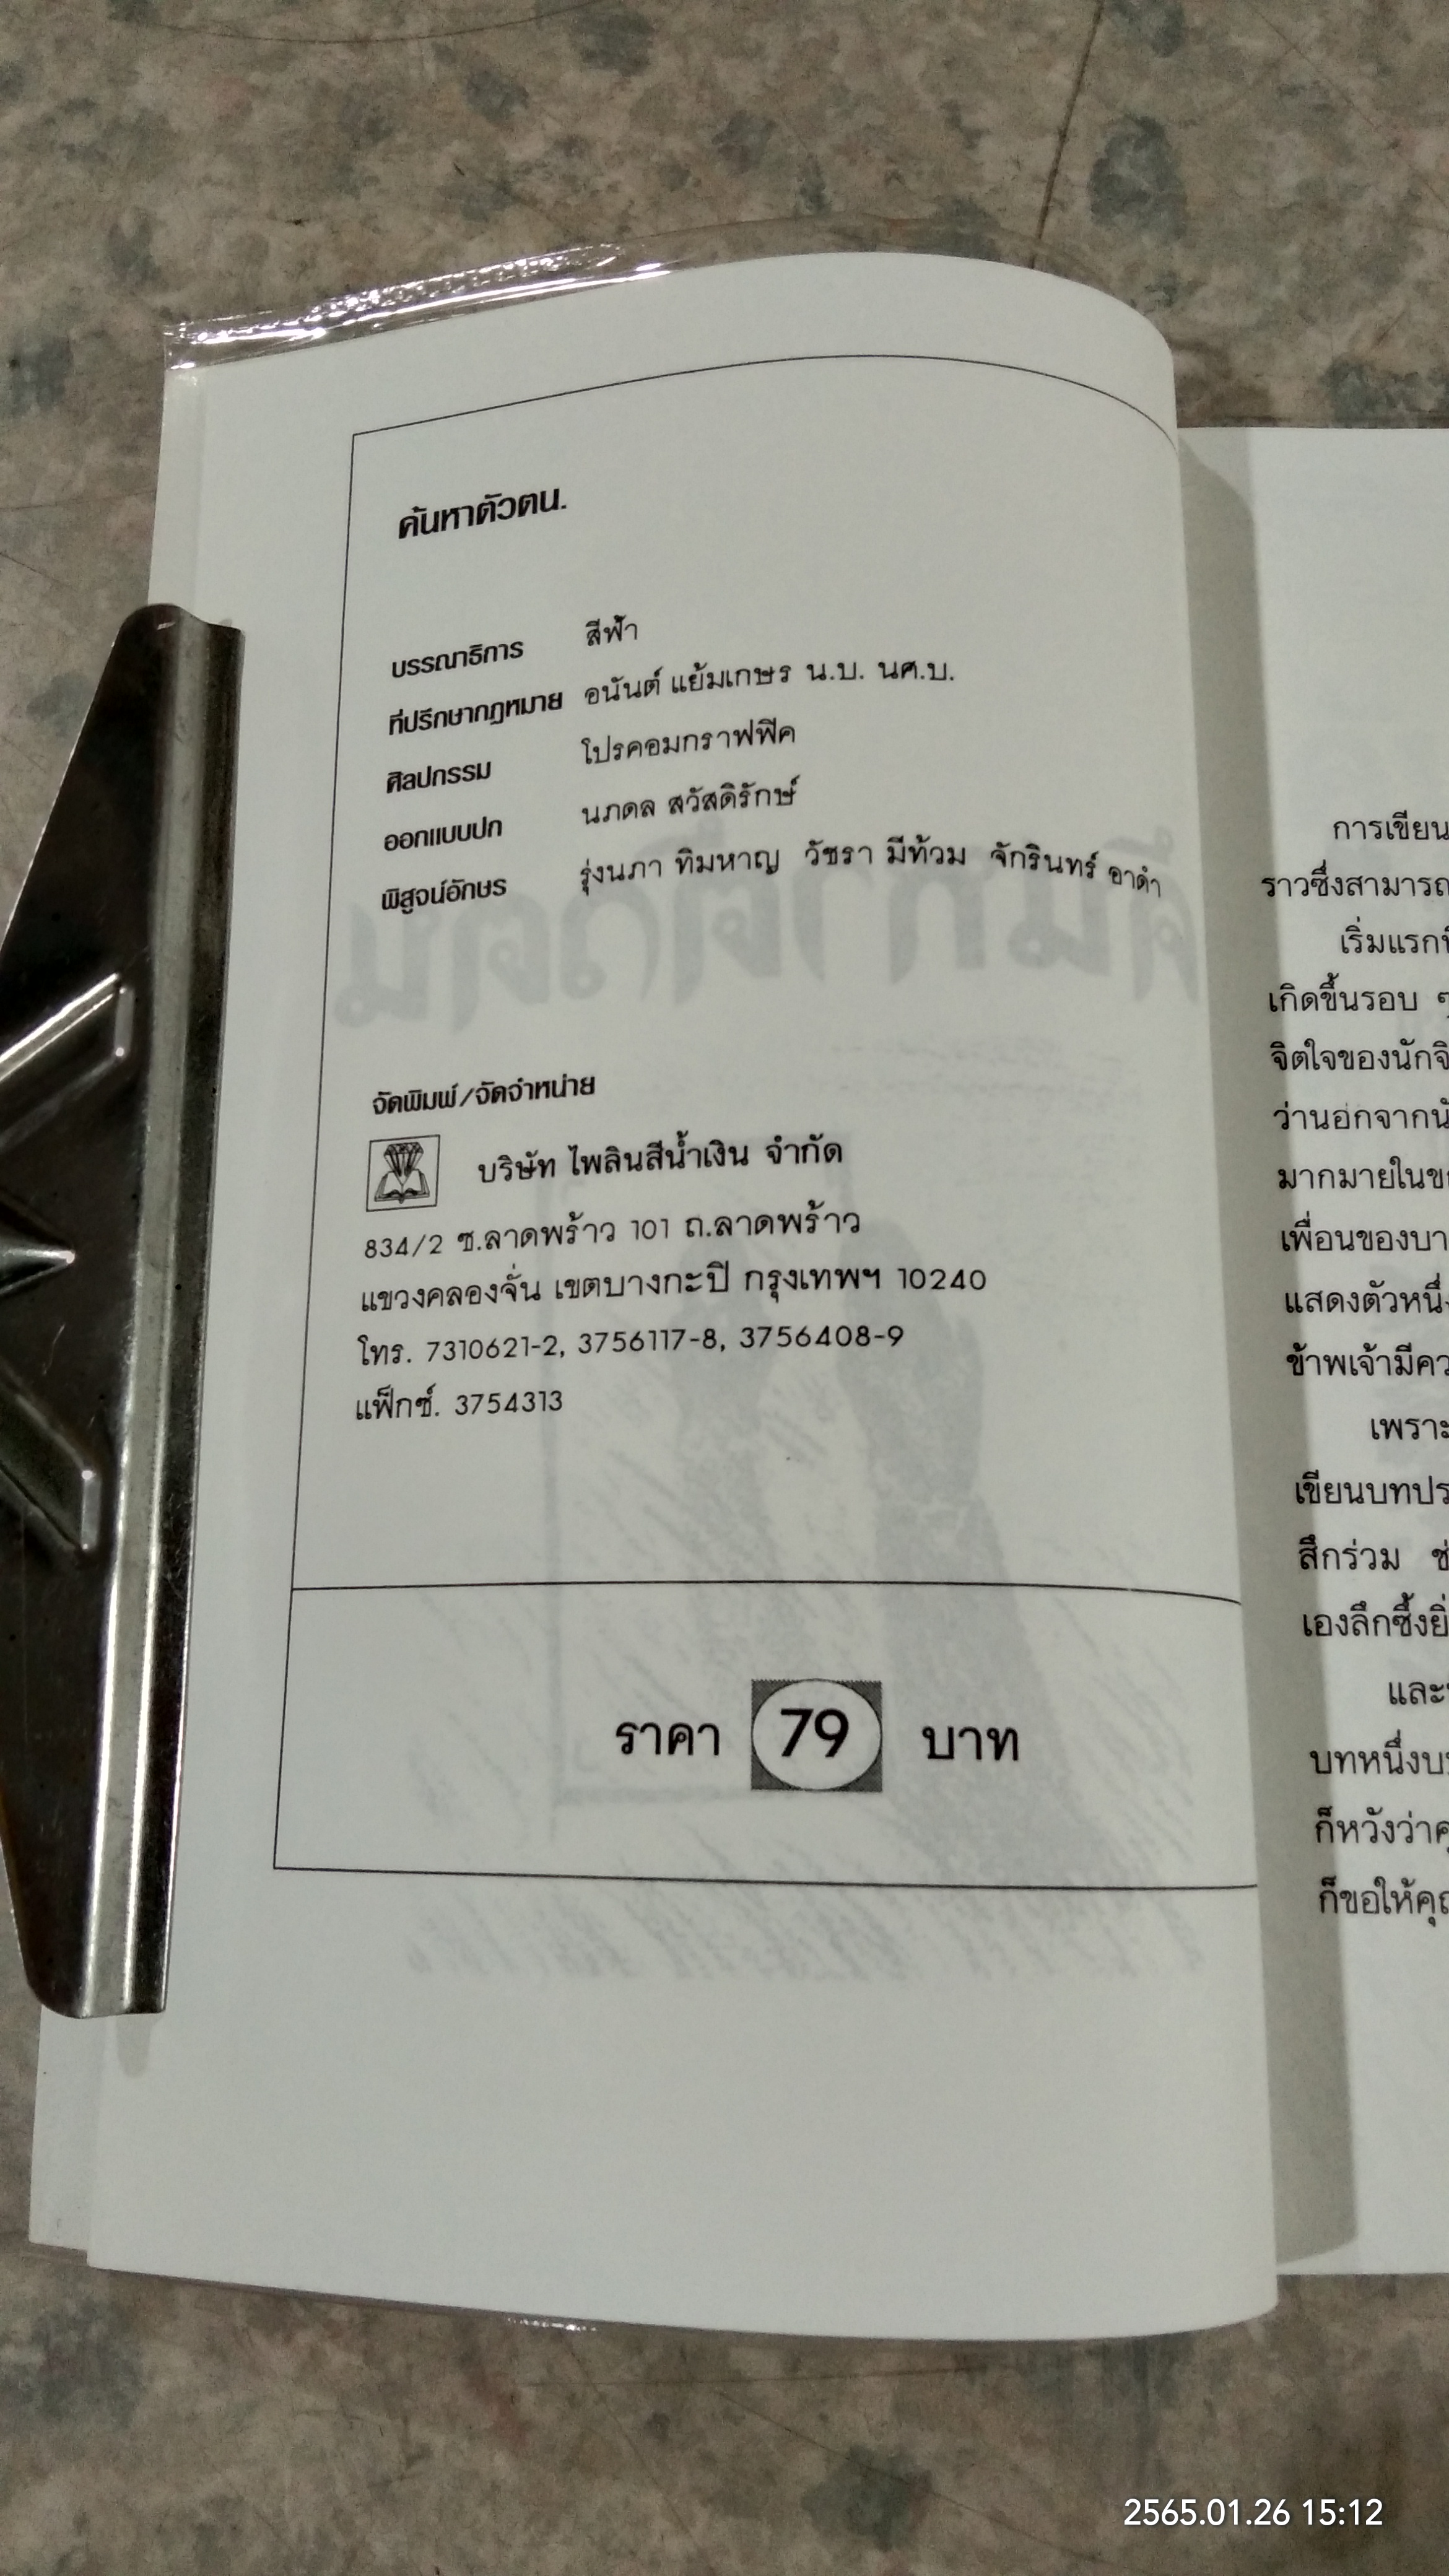 ค้นหาตัวตน.
บรรณาธิการ สีฟ้า
ที่ปรึกษากฎหมาย อนันต์ แย้มเกษร น.บ. นศ.บ.
ศิลปกรรม โปรคอมกราฟฟิค
ออกแบบปก นภดล สวัสดิรักษ์
พิสูจน์อักษร รุ่งนภา ทิมหาญ วัชรา มีท้วม จักรินทร์ อาดำ
จัดพิมพ์/จัดจำหน่าย
บริษัท ไพลินสีน้ำเงิน จำกัด
834/2 ซ.ลาดพร้าว 101 ถ.ลาดพร้าว
แขวงคลองจั่น เขตบางกะปิ กรุงเทพฯ 10240
โทร. 7310621-2, 3756117-8, 3756408-9
แฟ็กซ์. 3754313
ราคา 79 บาท
การเขียน
ราวซึ่งสามารถ
เริ่มแรกที
เกิดขึ้นรอบ ๆ
จิตใจของนักจิ
ว่านอกจากนั
มากมายใน
เพื่อนของบา
แสดงตัวหนึ่ง
ข้าพเจ้ามีคว
เพราะ
เขียนบทประ
สึกร่วม ช่
เองลึกซึ้งยิ่
และ
บทหนึ่งบ
ก็หวังว่าคุ
ก็ขอให้คุณ
2565.01.26 15:12